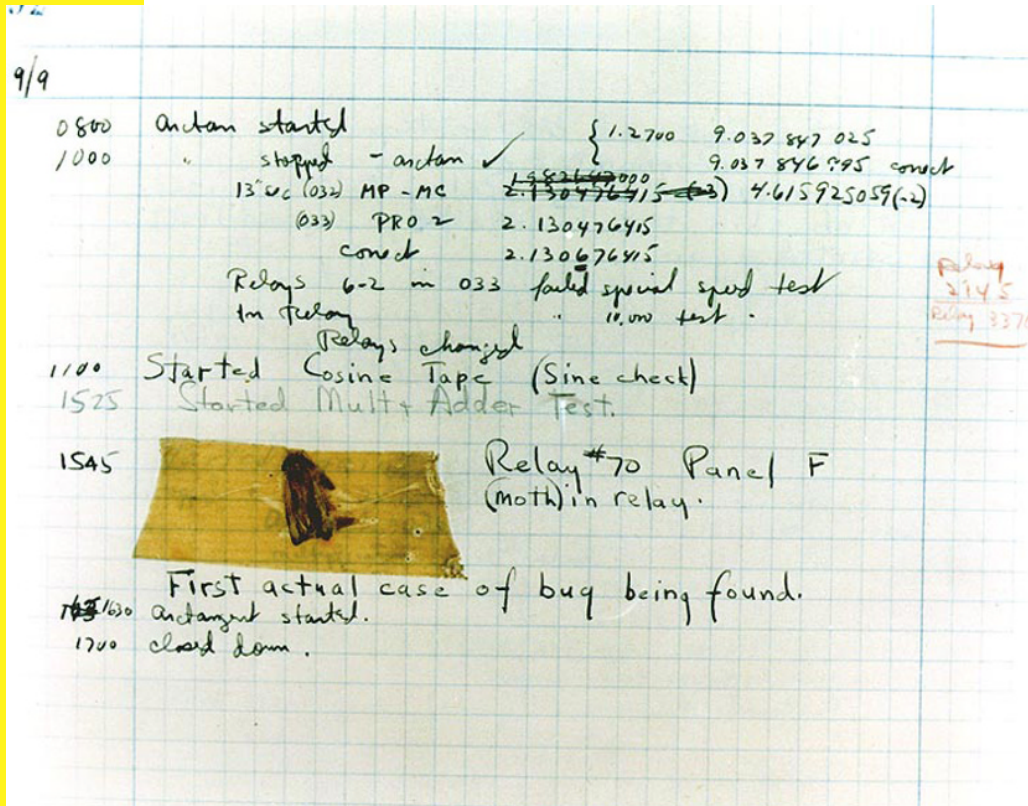 9/9
0800 arctan started { 1.2700 9.037 847 025
1000 " stopped - arctan ✓ 9.037 846 correct
13" sec (032) MP - MC 2.130476415 (-3) 4.615925059(-2)
(033) PRO 2 2.130476415
correct 2.130676415
Relays 6-2 in 033 failed special speed test
In Relay " 10,000 test.
Relay
2145
Relay 337
Relays changed
1100 Started Cosine Tape (Sine check)
1525 Started Mult + Adder Test.
1545 Relay #70 Panel F
(moth) in relay.
First actual case of bug being found.
1630 arctangent started.
1700 closed down.